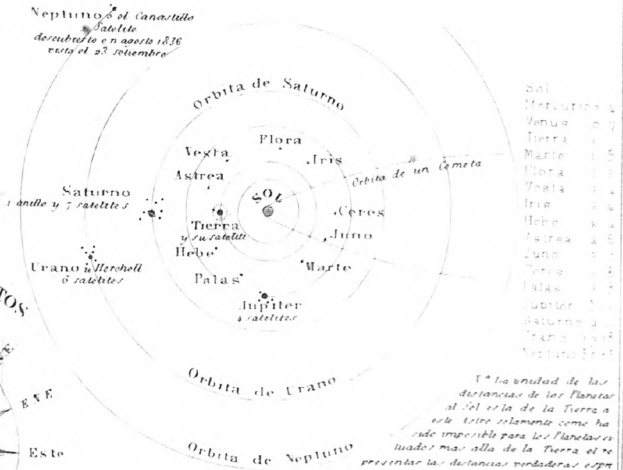 Neptuno ó el Canastillo
Satelite
descubierto en agosto 1836
visto el 23 setiembre
Orbita de Saturno
Flora
Vesta
Iris
Astrea
Orbita de un Cometa
SOL
Saturno
1 anillo y 7 satelites
Ceres
Tierra
y su satelite
Juno
Hebe
Urano ú Herchell
6 satelites
Marte
Palas
Jupiter
4 satelites
Orbita de Urano
Orbita de Neptuno
TOS
ENE
Este
Sol
Mercurio
Venus
Tierra
Marte
Flora
Vesta
Iris
Hebe
Astrea
Juno
Ceres
Palas
Jupiter
Saturno
Urano
Neptuno
La unidad de las
distancias de los Planetas
al Sol es la de la Tierra a
este Astro solamente como ha
sido imposible para los Planetas si
tuados mas alla de la Tierra el re
presentar las distancias verdaderas espre